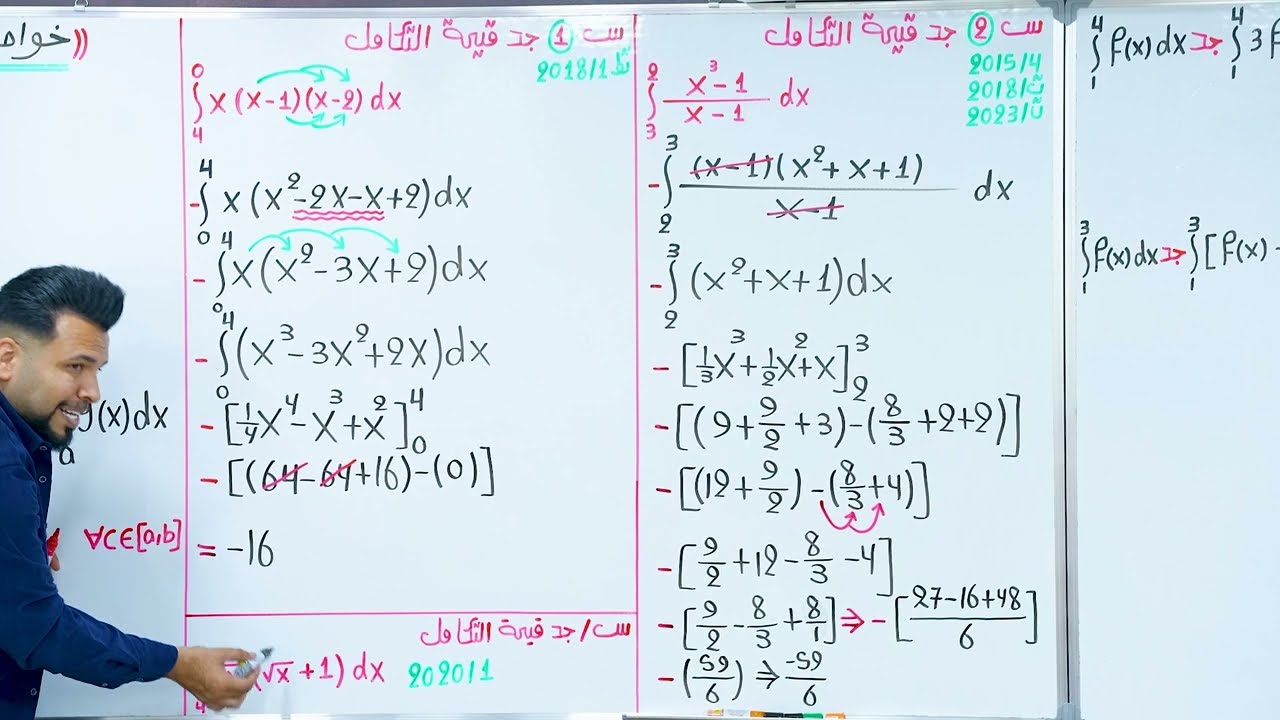 ((خواص
س 1 جد قيمة التكامل
2018/1ت
∫₄⁰ x (x-1)(x-2) dx
-∫₀⁴ x (x²-2x-x+2)dx
-∫₀⁴ x(x²-3x+2)dx
-∫₀⁴ (x³-3x²+2x)dx
-[¼x⁴-x³+x²]₀⁴
-[(64-64+16)-(0)]
= -16
g(x)dx
a
∀C∈[a,b]
س/جد قيمة التكامل
(√x+1) dx 2020/1
4
س 2 جد قيمة التكامل
2015/4
2018/ت
2023/ت
∫₃² (x³-1)/(x-1) dx
-∫₂³ (x-1)(x²+x+1)/(x-1) dx
-∫₂³ (x²+x+1)dx
-[⅓x³+½x²+x]₂³
-[(9+9/2+3)-(8/3+2+2)]
-[(12+9/2)-(8/3+4)]
-[9/2+12-8/3-4]
-[9/2-8/3+8/1]⇒-[(27-16+48)/6]
-(59/6)⇒-59/6
∫₁⁴ f(x)dx جد ∫₁⁴ 3f
∫₁³ f(x)dx جد ∫₁³ [f(x)-